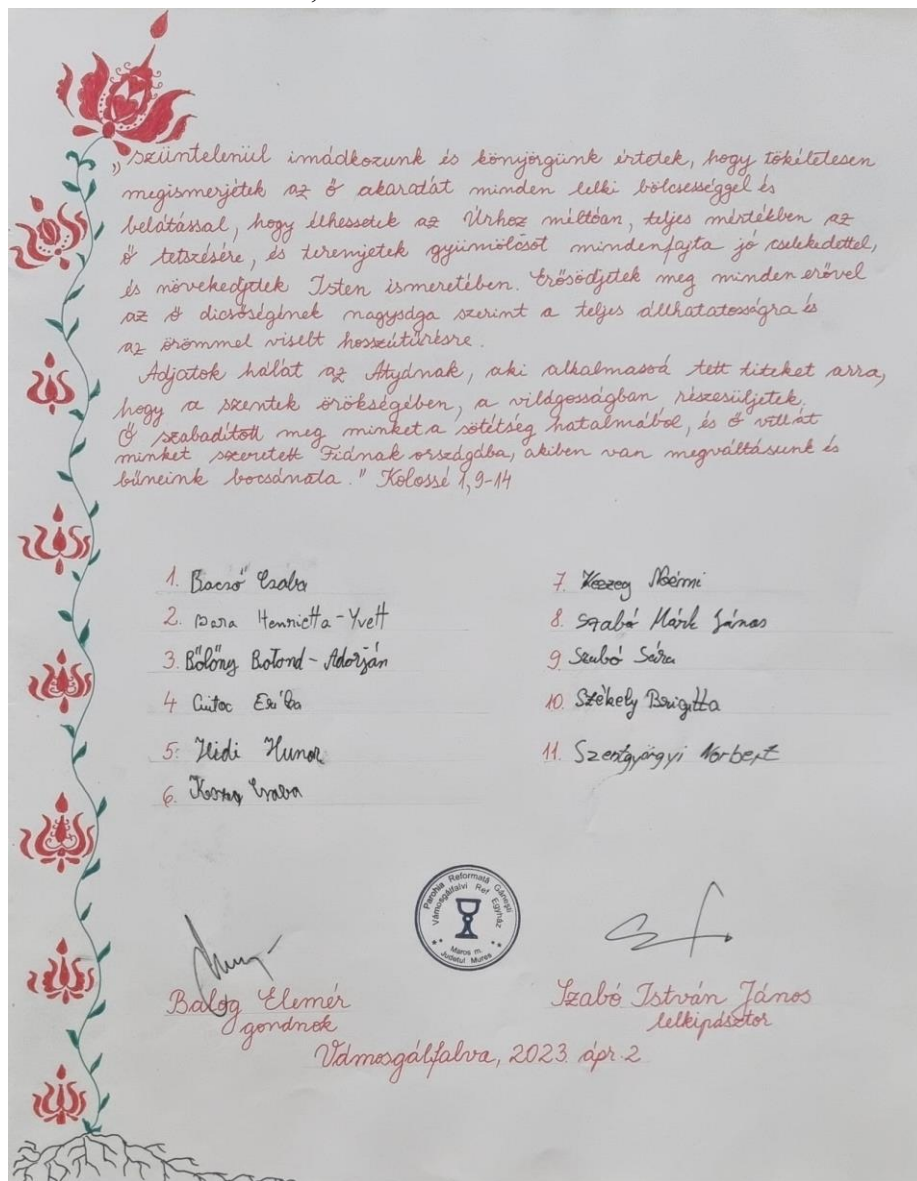 „Szüntelenül imádkozunk és könyörgünk értetek, hogy tökéletesen
megismerjétek az ő akaratát minden lelki bölcsességgel és
belátással, hogy élhessetek az Úrhoz méltóan, teljes mértékben az
ő tetszésére, és teremjetek gyümölcsöt mindenfajta jó cselekedettel,
és növekedjetek Isten ismeretében. Erősödjetek meg minden erővel
az ő dicsőségének nagysága szerint a teljes állhatatosságra és
az örömmel viselt hosszútűrésre.
Adjatok hálát az Atyának, aki alkalmassá tett titeket arra,
hogy a szentek örökségében, a világosságban részesüljetek.
Ő szabadított meg minket a sötétség hatalmából, és ő vitt át
minket szeretett Fiának országába, akiben van megváltásunk és
bűneink bocsánata." Kolossé 1,9-14
1. Bacsó Csaba
2. Henrietta-Yvett
3. Bölöny Botond-Adorján
4
5. Hidi Hunor
6. Csaba
7. Keszeg Noémi
8. Szabó Márk János
9 Szabó Sára
10. Székely Brigitta
11. Szentgyörgyi Norbert
Parohia Reformată Gănești
Vámosgálfalvi Ref. Egyház
Maros m.
Județul Mureș
Balog Elemér
gondnok
Szabó István János
lelkipásztor
Vámosgálfalva, 2023 ápr. 2